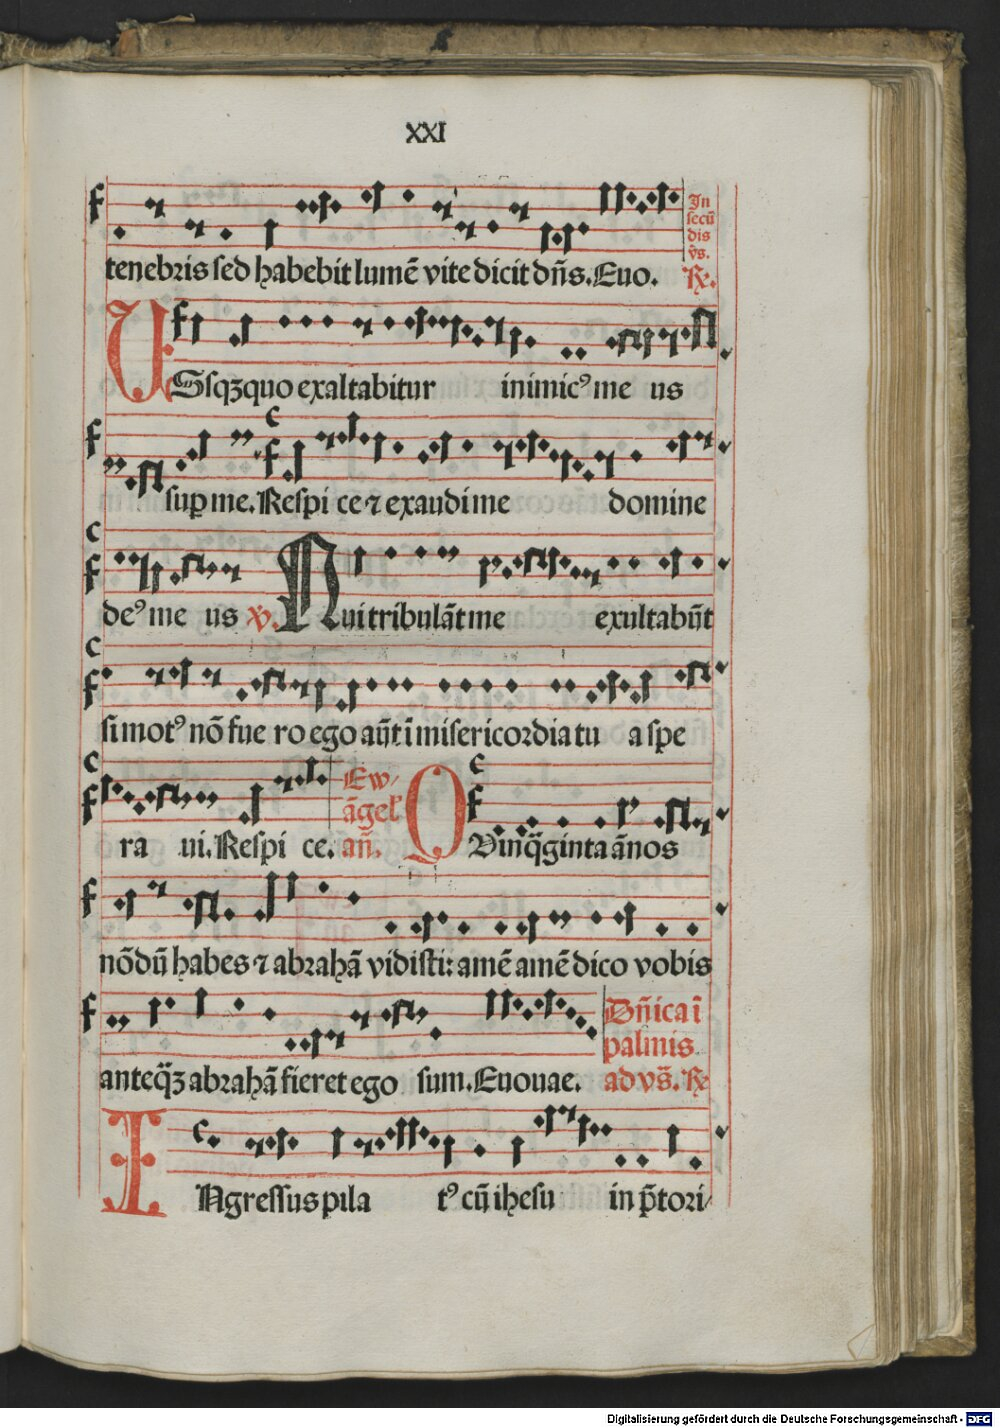 XXI
In
secū
dis
v̄s.
tenebris sed habebit lumē vite dicit dn̄s. Euo. ℟.
VSqꝫquo exaltabitur inimicꝰ me us
suꝑ me. Respi ce ⁊ exaudi me domine
deꝰ me us ℣. Nui tribulāt me exultabūt
si motꝰ nō fue ro ego aūt ī misericordia tu a spe
ra ui. Respi ce.
Ew/
āgel'
an̄.
QUinq̄ginta ānos
nōdū habes ⁊ abrahā vidisti: amē amē dico vobis
anteq̄ꝫ abrahā fieret ego sum. Euouae.
Dn̄ica ī
palmis
ad vs̄. ℟
INgressus pila tꝰ cū ihesu in p̄tori/
Digitalisierung gefördert durch die Deutsche Forschungsgemeinschaft - DFG